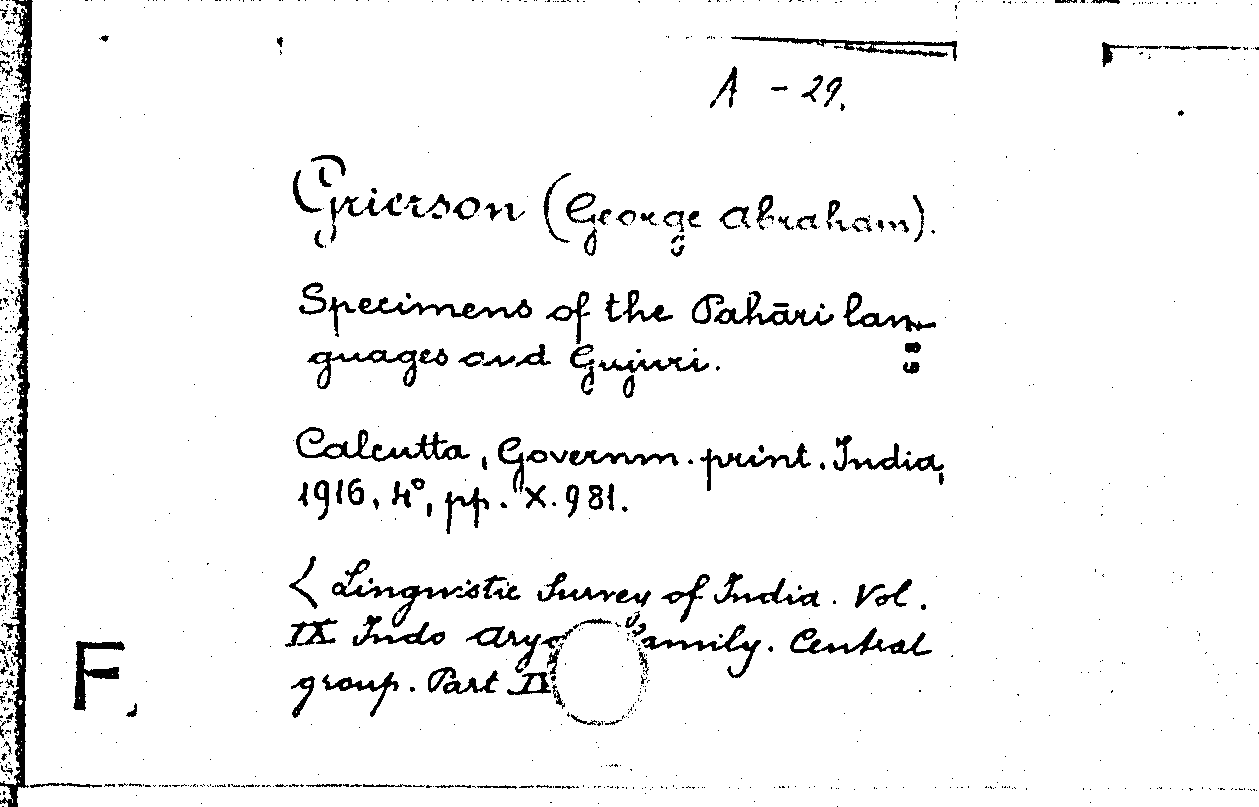 A - 29.
Grierson (George Abraham).
Specimens of the Pahāri lan-
guages and Gujuri.
Calcutta, Governm. print. India,
1916, 4°, pp. X. 981.
< Linguistic Survey of India. Vol.
IX Indo Family. Central
group. Part
F.